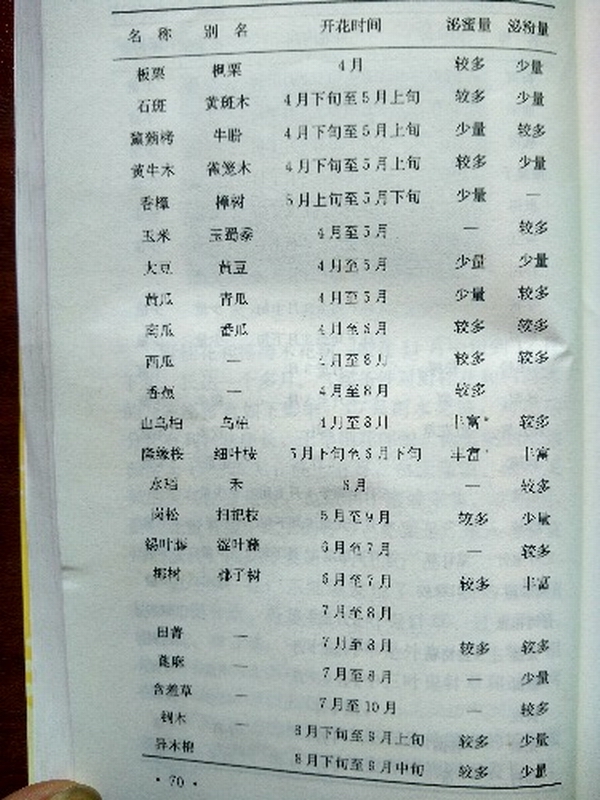 名称 别名 开花时间 泌蜜量 泌粉量
板栗 枫栗 4月 较多 少量
石斑 黄斑木 4月下旬至5月上旬 较多 少量
牛盼 4月下旬至5月上旬 少量 较多
黄牛木 雀笼木 4月下旬至5月上旬 较多 少量
香樟 樟树 5月上旬至5月下旬 少量 —
玉米 玉蜀黍 4月至5月 — 较多
大豆 黄豆 4月至5月 少量 少量
黄瓜 青瓜 4月至5月 少量 较多
南瓜 番瓜 4月至8月 较多 较多
西瓜 — 4月至8月 较多 较多
香蕉 — 4月至8月 较多
山乌桕 乌桕 4月至8月 丰富 较多
隆缘桉 细叶桉 5月下旬至6月下旬 丰富 丰富
水稻 禾 6月 — 较多
岗松 扫把枝 5月至9月 较多 少量
锡叶藤 涩叶藤 6月至7月 — 较多
椰树 椰子树 6月至7月 较多 丰富
7月至8月
田菁 — 7月至8月 较多 较多
蓖麻 7月至8月 — 少量
含羞草 — 7月至10月 — 较多
— 8月下旬至9月上旬 较多 少量
异木棉 8月下旬至9月中旬 较多 少量
· 70 ·